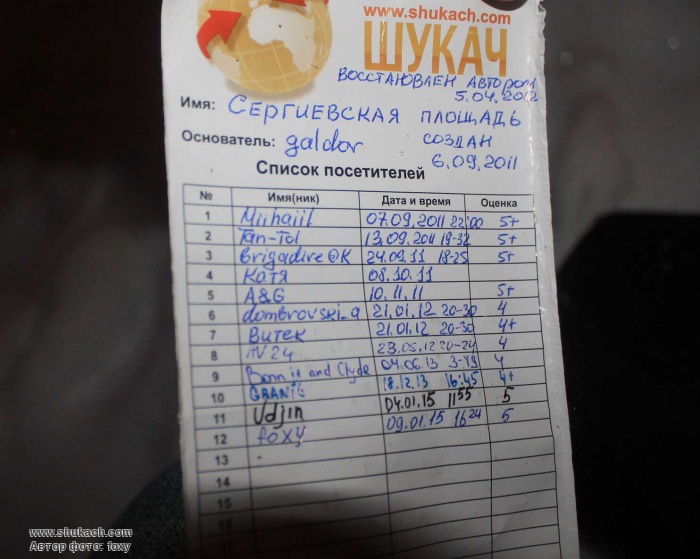 www.shukach.com
ШУКАЧ
ВОССТАНОВЛЕН АВТОРОМ
5.04.2012
Имя: СЕРГИЕВСКАЯ ПЛОЩАДЬ
Основатель: galdor СОЗДАН
6.09.2011
Список посетителей
№ Имя(ник) Дата и время Оценка
1 Mihaiil 07.09.2011 22:00 5+
2 Tan-Tol 13.09.2011 19-32 5+
3 Brigadire@K 24.09.11 18-25 5+
4 Катя 08.10.11
5 A&G 10.11.11 5+
6 dombrovski_a 21.01.12 20-30 4
7 Витек 21.01.12 20-30 4+
8 23.05.12 20-24 4
9 Bonnie and Clyde 04.06.13 3-49 4
10 GRANIt 18.12.13 16:45 4+
11 Udjin 04.01.15 11 55 5
12 foxy 09.01.15 16 24 5
13
14
15
16
www.shukach.com
Автор фото: foxy